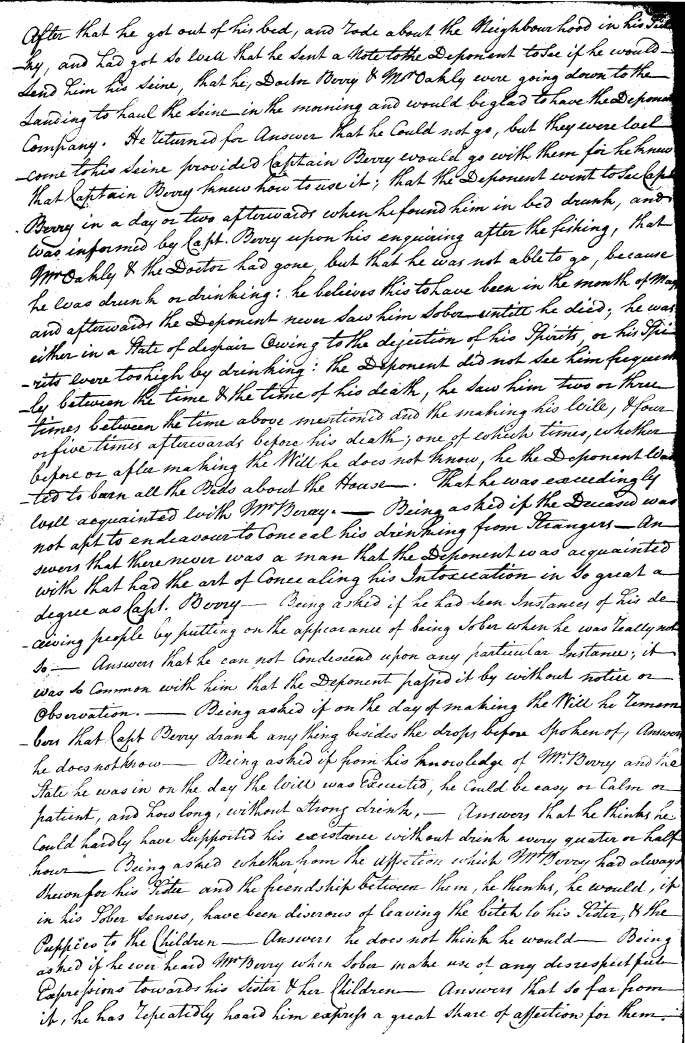 After that he got out of his bed, and rode about the Neighbourhood in his Sul
-ky, and had got so well that he sent a Note to the Deponent to see if he would
Send him his seine, that he, Doctor Berry & Mr Oakly were going down to the
Landing to haul the seine in the morning and would be glad to have the Deponents
Company. He returned for Answer that he Could not go, but they were wel
-come to his seine provided Captain Berry would go with them for he knew
that Captain Berry knew how to use it; that the Deponent went to see Capt
Berry in a day or two afterwards when he found him in bed drunk, and
was informed by Capt. Berry upon his enquiring after the fishing, that
Mr Oakly & the Doctor had gone, but that he was not able to go, because
he was drunk or drinking: he believes this to have been in the month of May
and afterwards the Deponent never saw him Sober untill he died; he was
either in a State of despair Owing to the dejection of his Spirits, or his Spi
-rits were too high by drinking: the Deponent did not see him frequent
-ly between the time & the time of his death, he saw him two or three
times between the time above mentioned and the making his Will, & four
or five times afterwards before his death; one of which times, whether
before or after making the Will he does not know, he the Deponent Wan
-ted to burn all the Beds about the House —. That he was exceedingly
well acquainted with Mr Berry. — Being asked if the Deceased was
not apt to endeavour to Conceal his drinking from Strangers — An
swers that there never was a man that the Deponent was acquainted
with that had the art of Concealing his Intoxication in so great a
degree as Capt. Berry — Being asked if he had seen Instances of his de
-ceiving people by putting on the appearance of being Sober when he was really not
so — Answers that he can not Condescend upon any particular Instance; it
was so Common with him that the Deponent passed it by without notice or
Observation. — Being asked if on the day of making the Will he remem
-bers that Capt Berry drank any thing besides the drops before spoken of, Answers
he does not know — Being asked if from his knowledge of Mr. Berry and the
State he was in on the day the Will was Executed, he Could be easy or Calm or
patient, and how long, without Strong drink, — Answers that he thinks he
Could hardly have Supported his existance without drink every quater or half
hour — Being asked whether from the affection which Mr Berry had always
shewn for his Sister and the friendship between them, he thinks, he would, if
in his Sober Senses, have been diserous of leaving the bitch to his Sister, & the
Puppies to the Children — Answers he does not think he would — Being
asked if he ever heard Mr Berry when Sober make use of any disrespectfull
Expressions towards his Sister & her Children — Answers that so far from
it, he has repeatedly heard him express a great Share of affection for them.